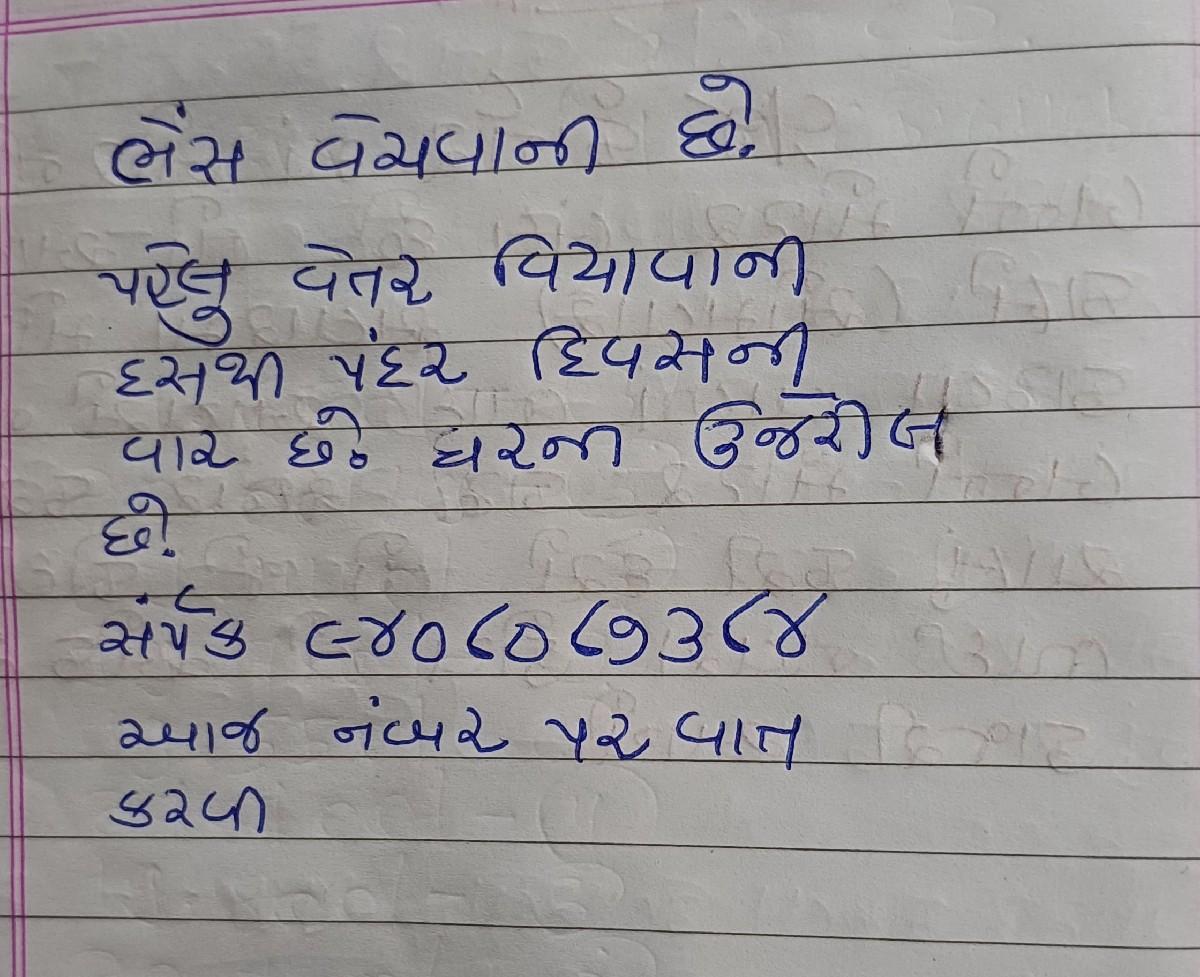 ભેંસ વેચવાની છે.
પહેલુ વેતર વિયાવાની
દસથી પંદર દિવસની
વાર છે. ઘરની ઉજરીલ
છે.
સંર્પક ૯૪૦૮૦૮૭૩૮૪
આજ નંબર પર વાત
કરવી